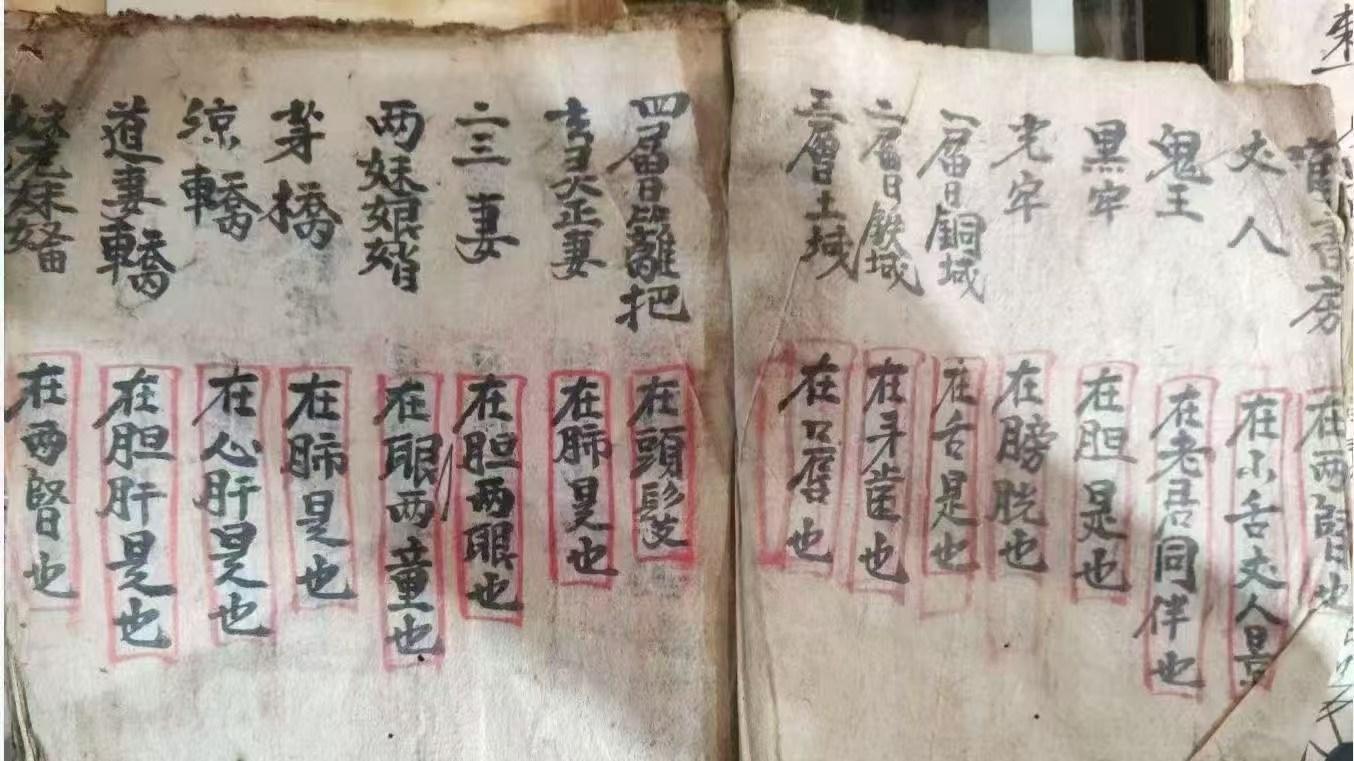 書房 在两腎也
丈人 在小舌丈人是
鬼王 在老君同伴也
黑牢 在胆是也
光牢 在膀胱也
一層銅城 在舌是也
二層鉄城 在牙歯也
三層土城 在口唇也
四層籬把 在頭髮
玄天正妻 在肺是也
二三妻 在胆两眼也
两妹娘娋 在眼两童也
茅橋 在肺是也
涼轎 在心肝是也
道妻轎 在胆肝是也
在两腎也